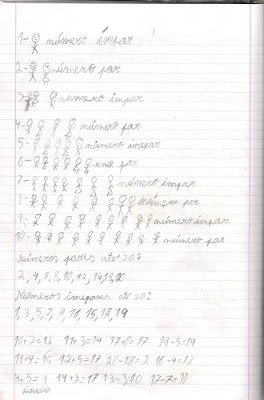 1- número ímpar
2- número par
3- número impar
4- número par
5- número impar
6- par
7- número impar
8- número par
9- número impar
10- número par
Números pares até 20:
2, 4, 6, 8, 10, 12, 14, 18, 20
Números imepares até 20:
1, 3, 5, 7, 9, 11, 15, 17, 19
10+2=12 11+3=14 17+0=17 19-5=14
11+4=15 12+5=17 20-18=2 16-4=12
4+5=9 14+3=17 13-3=10 17-7=10